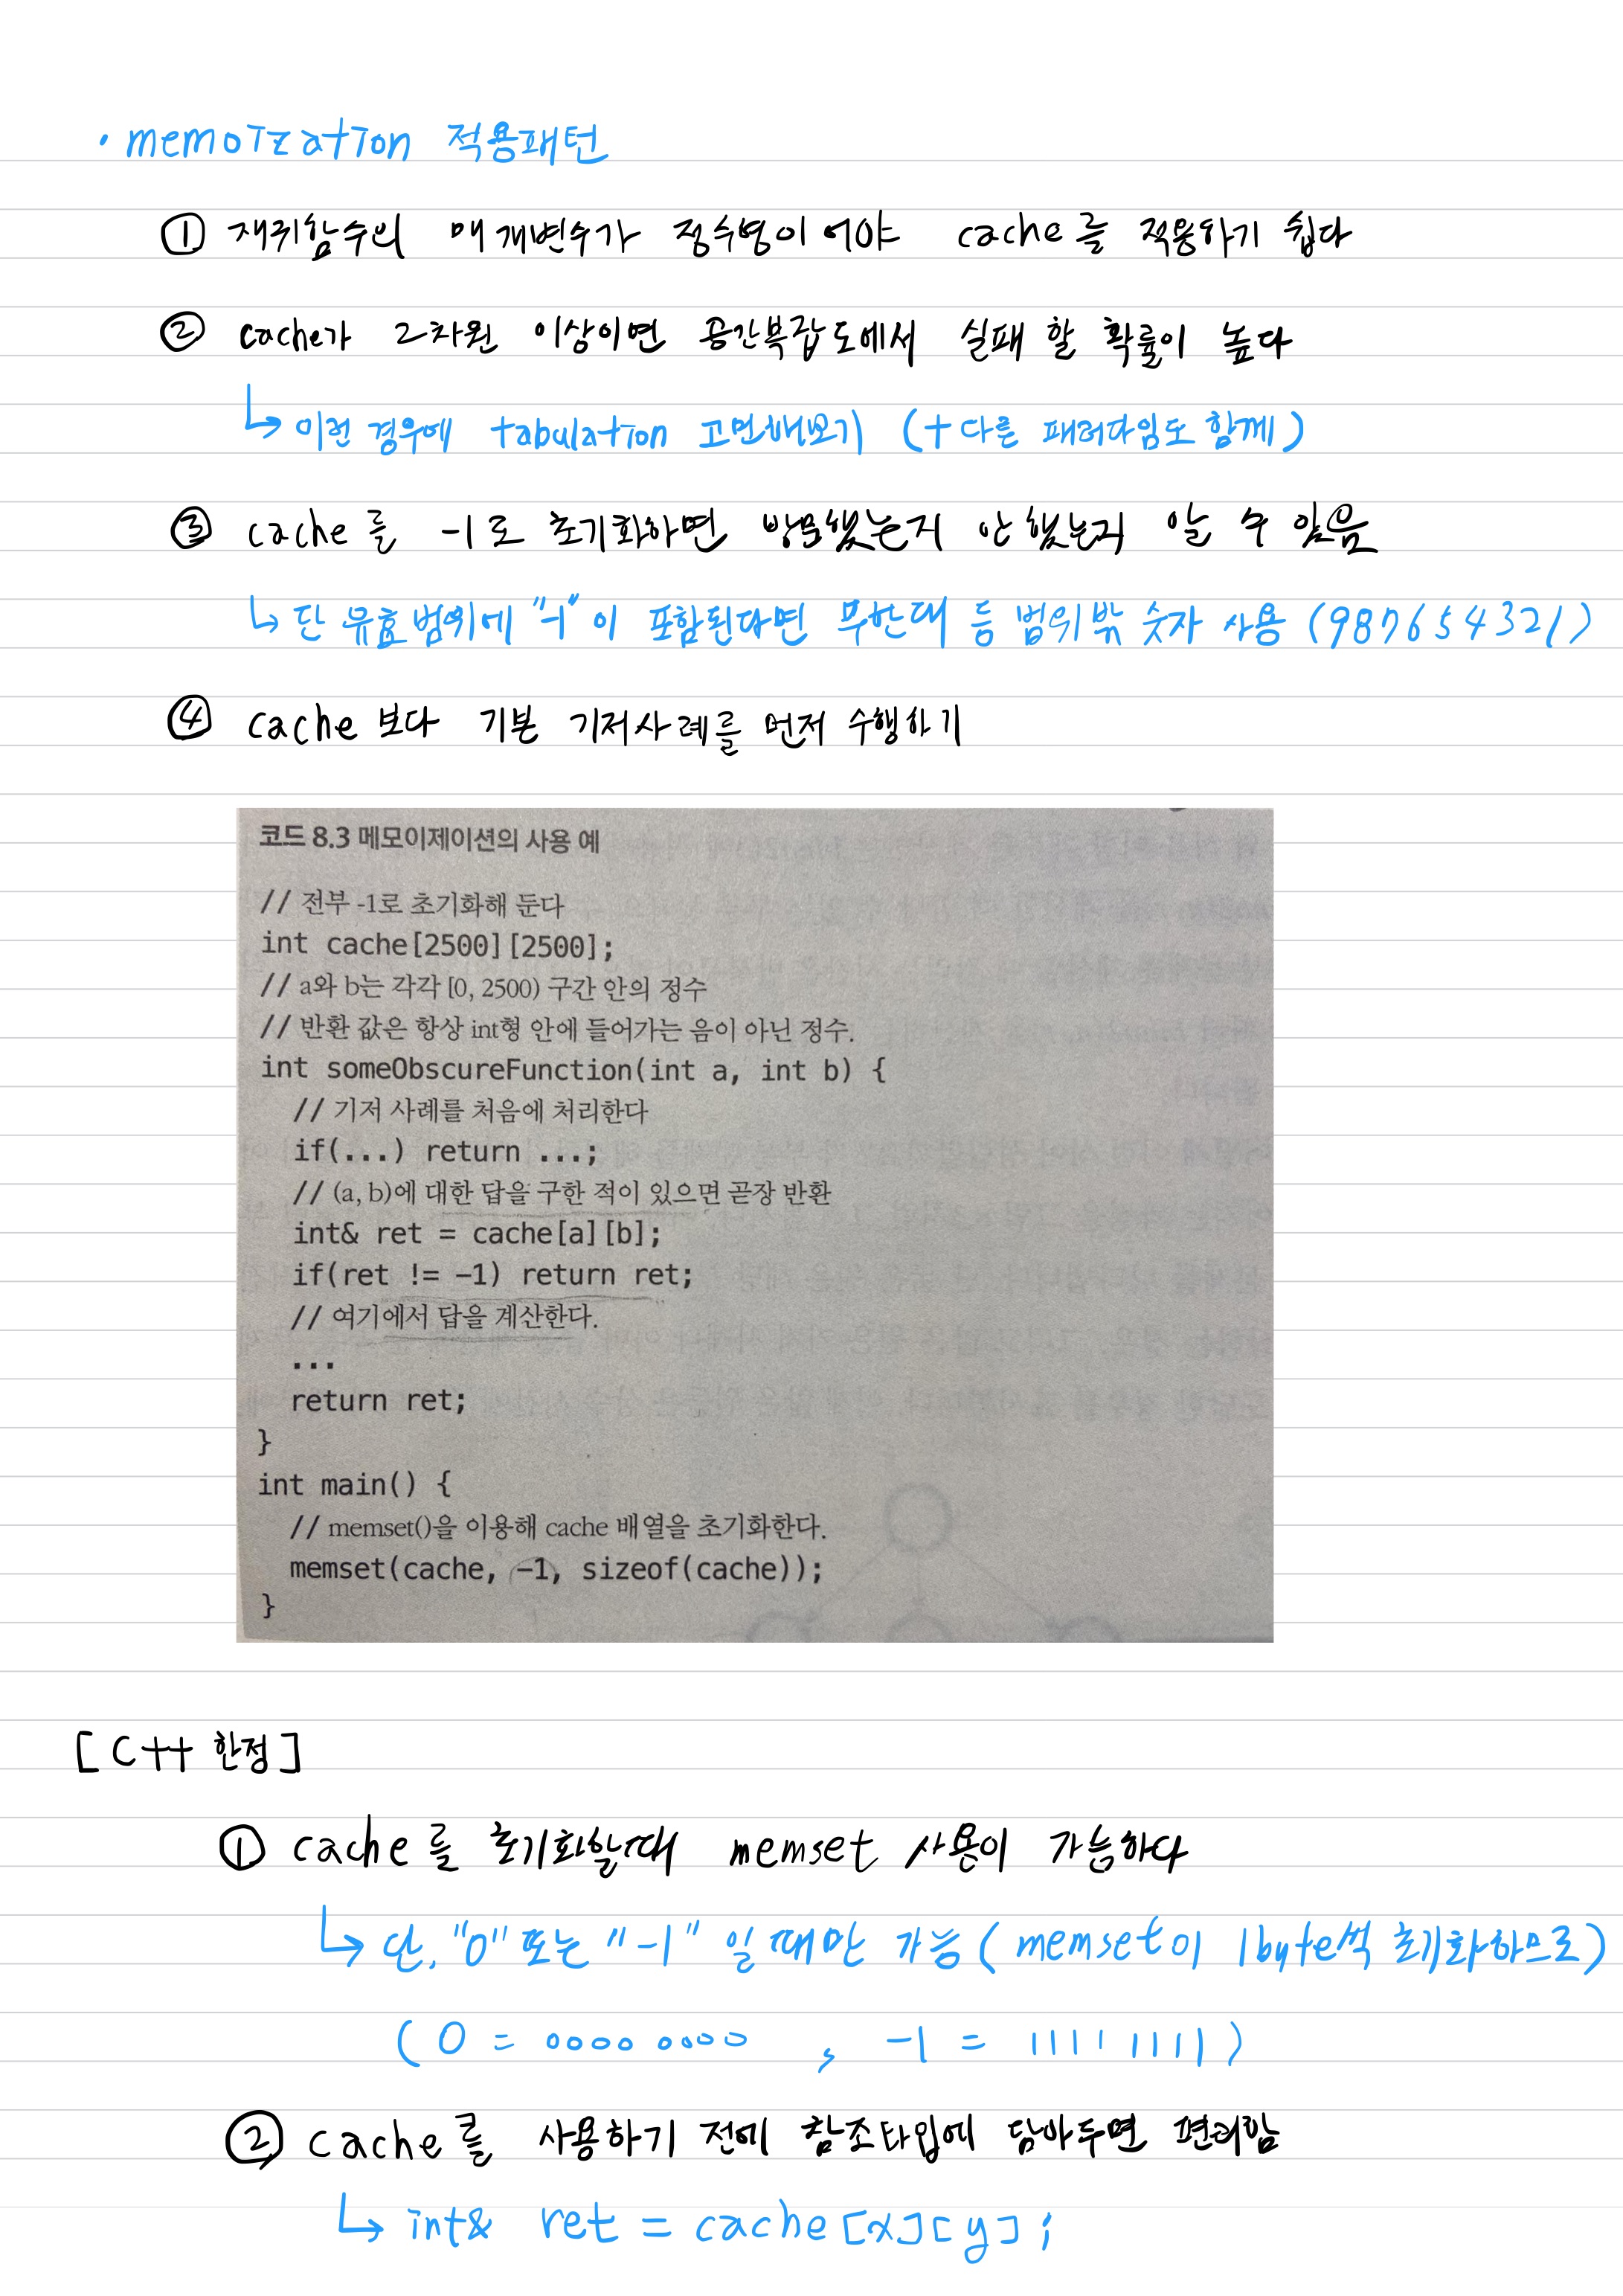 · memoization 적용패턴
① 재귀함수의 매개변수가 정수형이어야 cache를 적용하기 쉽다
② cache가 2차원 이상이면 공간복잡도에서 실패 할 확률이 높다
↳ 이런 경우에 tabulation 고민해보기 (+ 다른 패러다임도 함께)
③ cache를 -1로 초기화하면 방문했는지 안 했는지 알 수 있음
↳ 단 유효범위에 "-1"이 포함된다면 무한대 등 범위밖 숫자 사용 (987654321)
④ cache 보다 기본 기저사례를 먼저 수행하기
코드 8.3 메모이제이션의 사용 예
// 전부 -1로 초기화해 둔다
int cache[2500][2500];
// a와 b는 각각 [0, 2500) 구간 안의 정수
// 반환 값은 항상 int형 안에 들어가는 음이 아닌 정수.
int someObscureFunction(int a, int b) {
// 기저 사례를 처음에 처리한다
if(...) return ...;
// (a, b)에 대한 답을 구한 적이 있으면 곧장 반환
int& ret = cache[a][b];
if(ret != -1) return ret;
// 여기에서 답을 계산한다.
...
return ret;
}
int main() {
// memset()을 이용해 cache 배열을 초기화한다.
memset(cache, -1, sizeof(cache));
}
[C++ 한정]
① cache를 초기화할때 memset 사용이 가능하다
↳ 단, "0" 또는 "-1" 일 때만 가능 (memset이 1byte씩 초기화하므로)
(0 = 0000 0000 , -1 = 1111 1111)
② cache를 사용하기 전에 참조타입에 담아두면 편리함
↳ int& ret = cache[x][y];